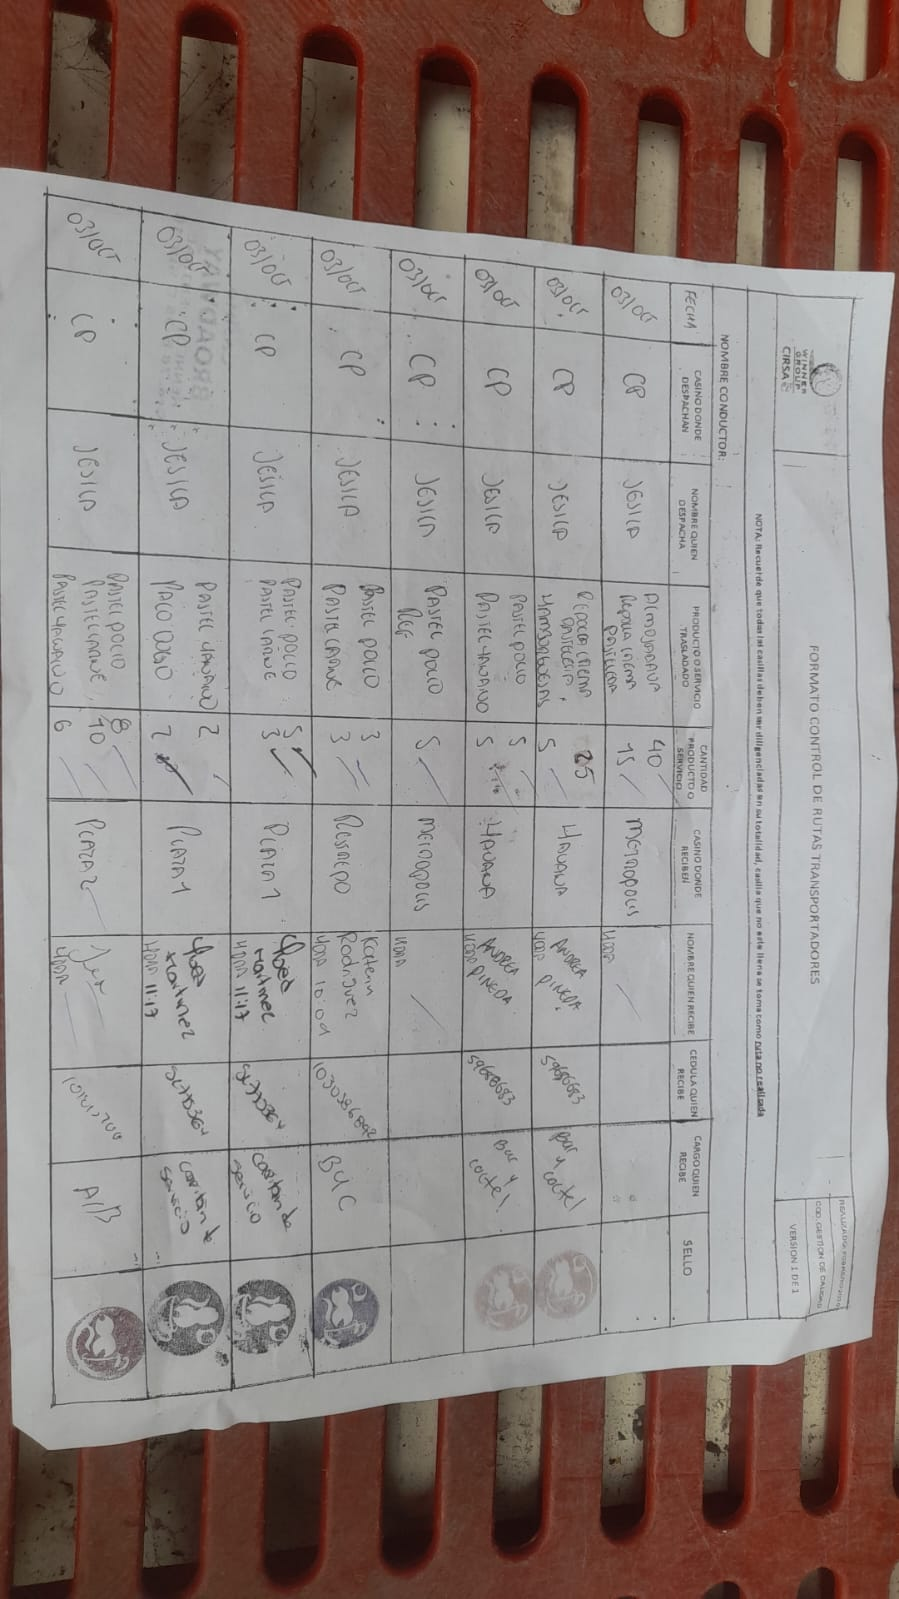 WINNER
GROUP
CIRSA
FORMATO CONTROL DE RUTAS TRANSPORTADORES
COD. GESTION DE CALIDAD
VERSION 1 DE 1
NOTA: Recuerde que todas las casillas deben ser diligenciadas en su totalidad, casilla que no este llena se toma como ruta no realizada
NOMBRE CONDUCTOR:
FECHA
CASINO DONDE DESPACHAN
NOMBRE QUIEN DESPACHA
PRODUCTO O SERVICIO TRASLADADO
CANTIDAD PRODUCTO O SERVICIO
CASINO DONDE RECIBEN
NOMBRE QUIEN RECIBE
CEDULA QUIEN RECIBE
CARGO QUIEN RECIBE
SELLO
03/oct
CP
JESICA
Almojabana 40
Repolla crema 15
Pasteleria
Metropolis
HORA
03/oct
CP
JESICA
Repolla crema 25
Pasteleria.
Hamburguesas 5
Havana
Andrea Pineda
HORA
59686683
Bar y coctel
03/oct
CP
JESICA
Pastel pollo 5
Pastel Hawaiano 5
Havana
Andrea Pineda
HORA
59686683
Bar y coctel.
03/oct
CP
JESICA
Pastel pollo 5
Ref
Metropolis
HORA
03/oct
CP
JESICA
Pastel pollo 3
Pastel carne 3
Restrepo
Katerin
Rodriguez
HORA 10:09
BUC
03/oct
CP
JESICA
Pastel pollo 5
Pastel carne 3
Plaza 1
Martinez
HORA 11:17
Capitan de
servicio
03/oct
CP
JESICA
Pastel Hawaiano 2
2
Plaza 1
Martinez
HORA 11:17
Capitan de
servicio
03/oct
CP
JESICA
Pastel pollo 8
Pastel carne 10
Pastel Hawaiano 6
Plaza 2
HORA
A/B